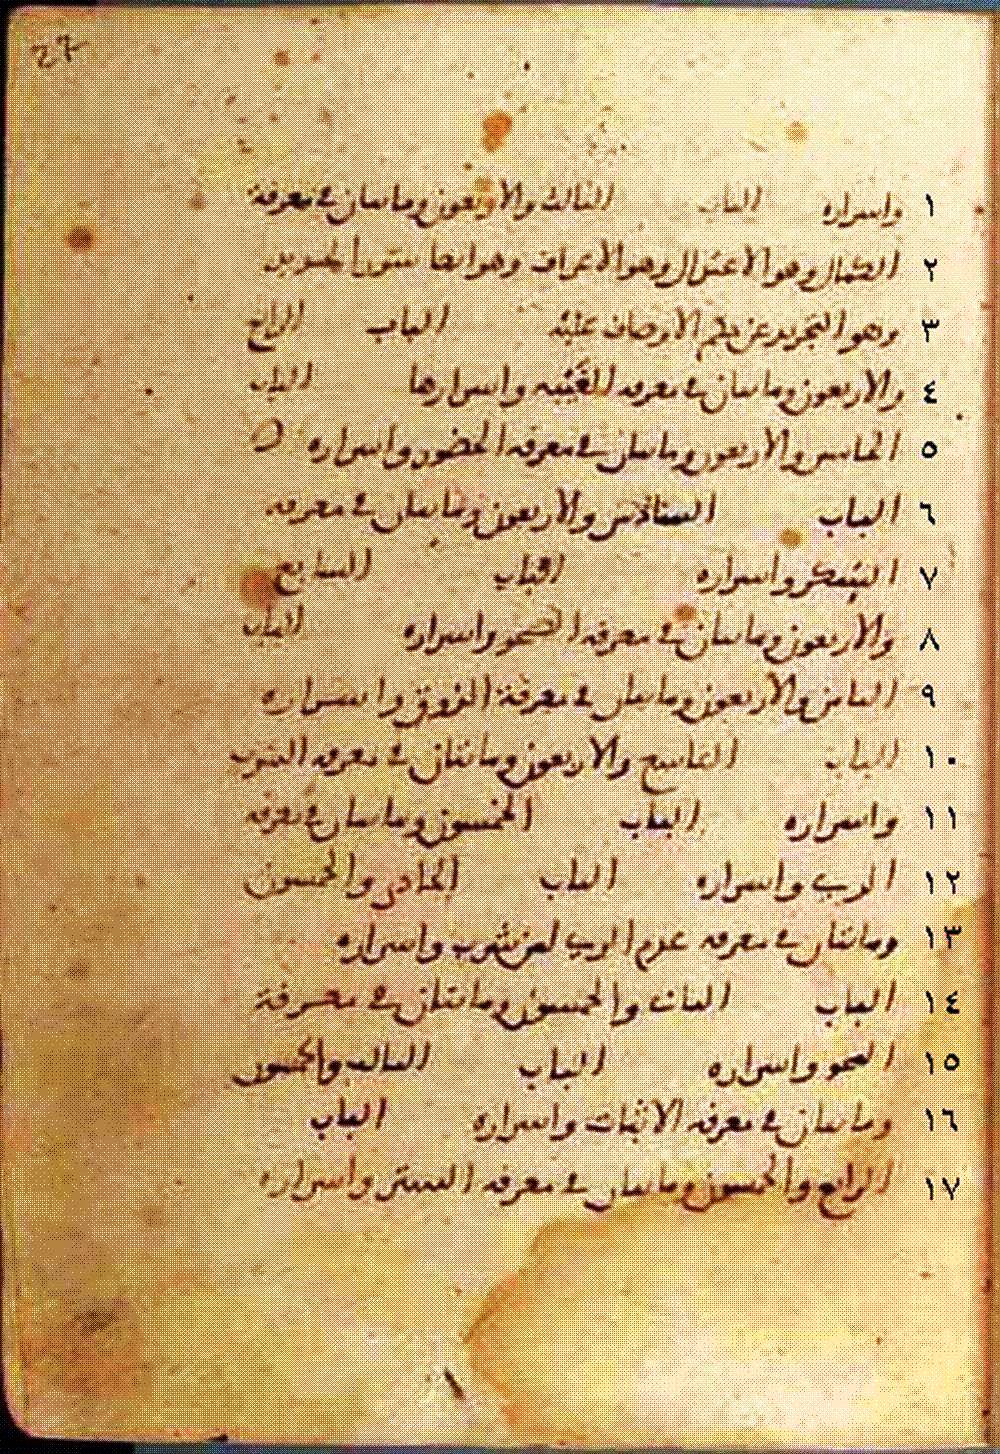 27
١ واسراره الباب الثالث والاربعون ومايتان في معرفة
٢ وهو الاعتزال وهو الاعراف وهو ايضا
٣ وهو التجريد عن حكم الاوصاف عليه الباب الرابع
٤ والاربعون ومايتان في معرفه الغيبه واسرارها الباب
٥ الخامس والاربعون ومايتان في معرفه الحضور واسراره
٦ الباب السادس والاربعون ومايتان في معرفه
٧ السكر واسراره الباب السابع
٨ والاربعون ومايتان في معرفه الصحو واسراره الباب
٩ الثامن والاربعون ومايتان في معرفة الذوق واسراره
١٠ الباب التاسع والاربعون ومايتان في معرفه الشرب
١١ واسراره الباب الخمسون ومايتان في معرفه
١٢ الري واسراره الباب الحادي والخمسون
١٣ ومايتان في معرفه عدم الري لمن شرب واسراره
١٤ الباب الثاني والخمسون ومايتان في معرفة
١٥ المحو واسراره الباب الثالث والخمسون
١٦ ومايتان في معرفه الاثبات واسراره الباب
١٧ الرابع والخمسون ومايتان في معرفه الستر واسراره